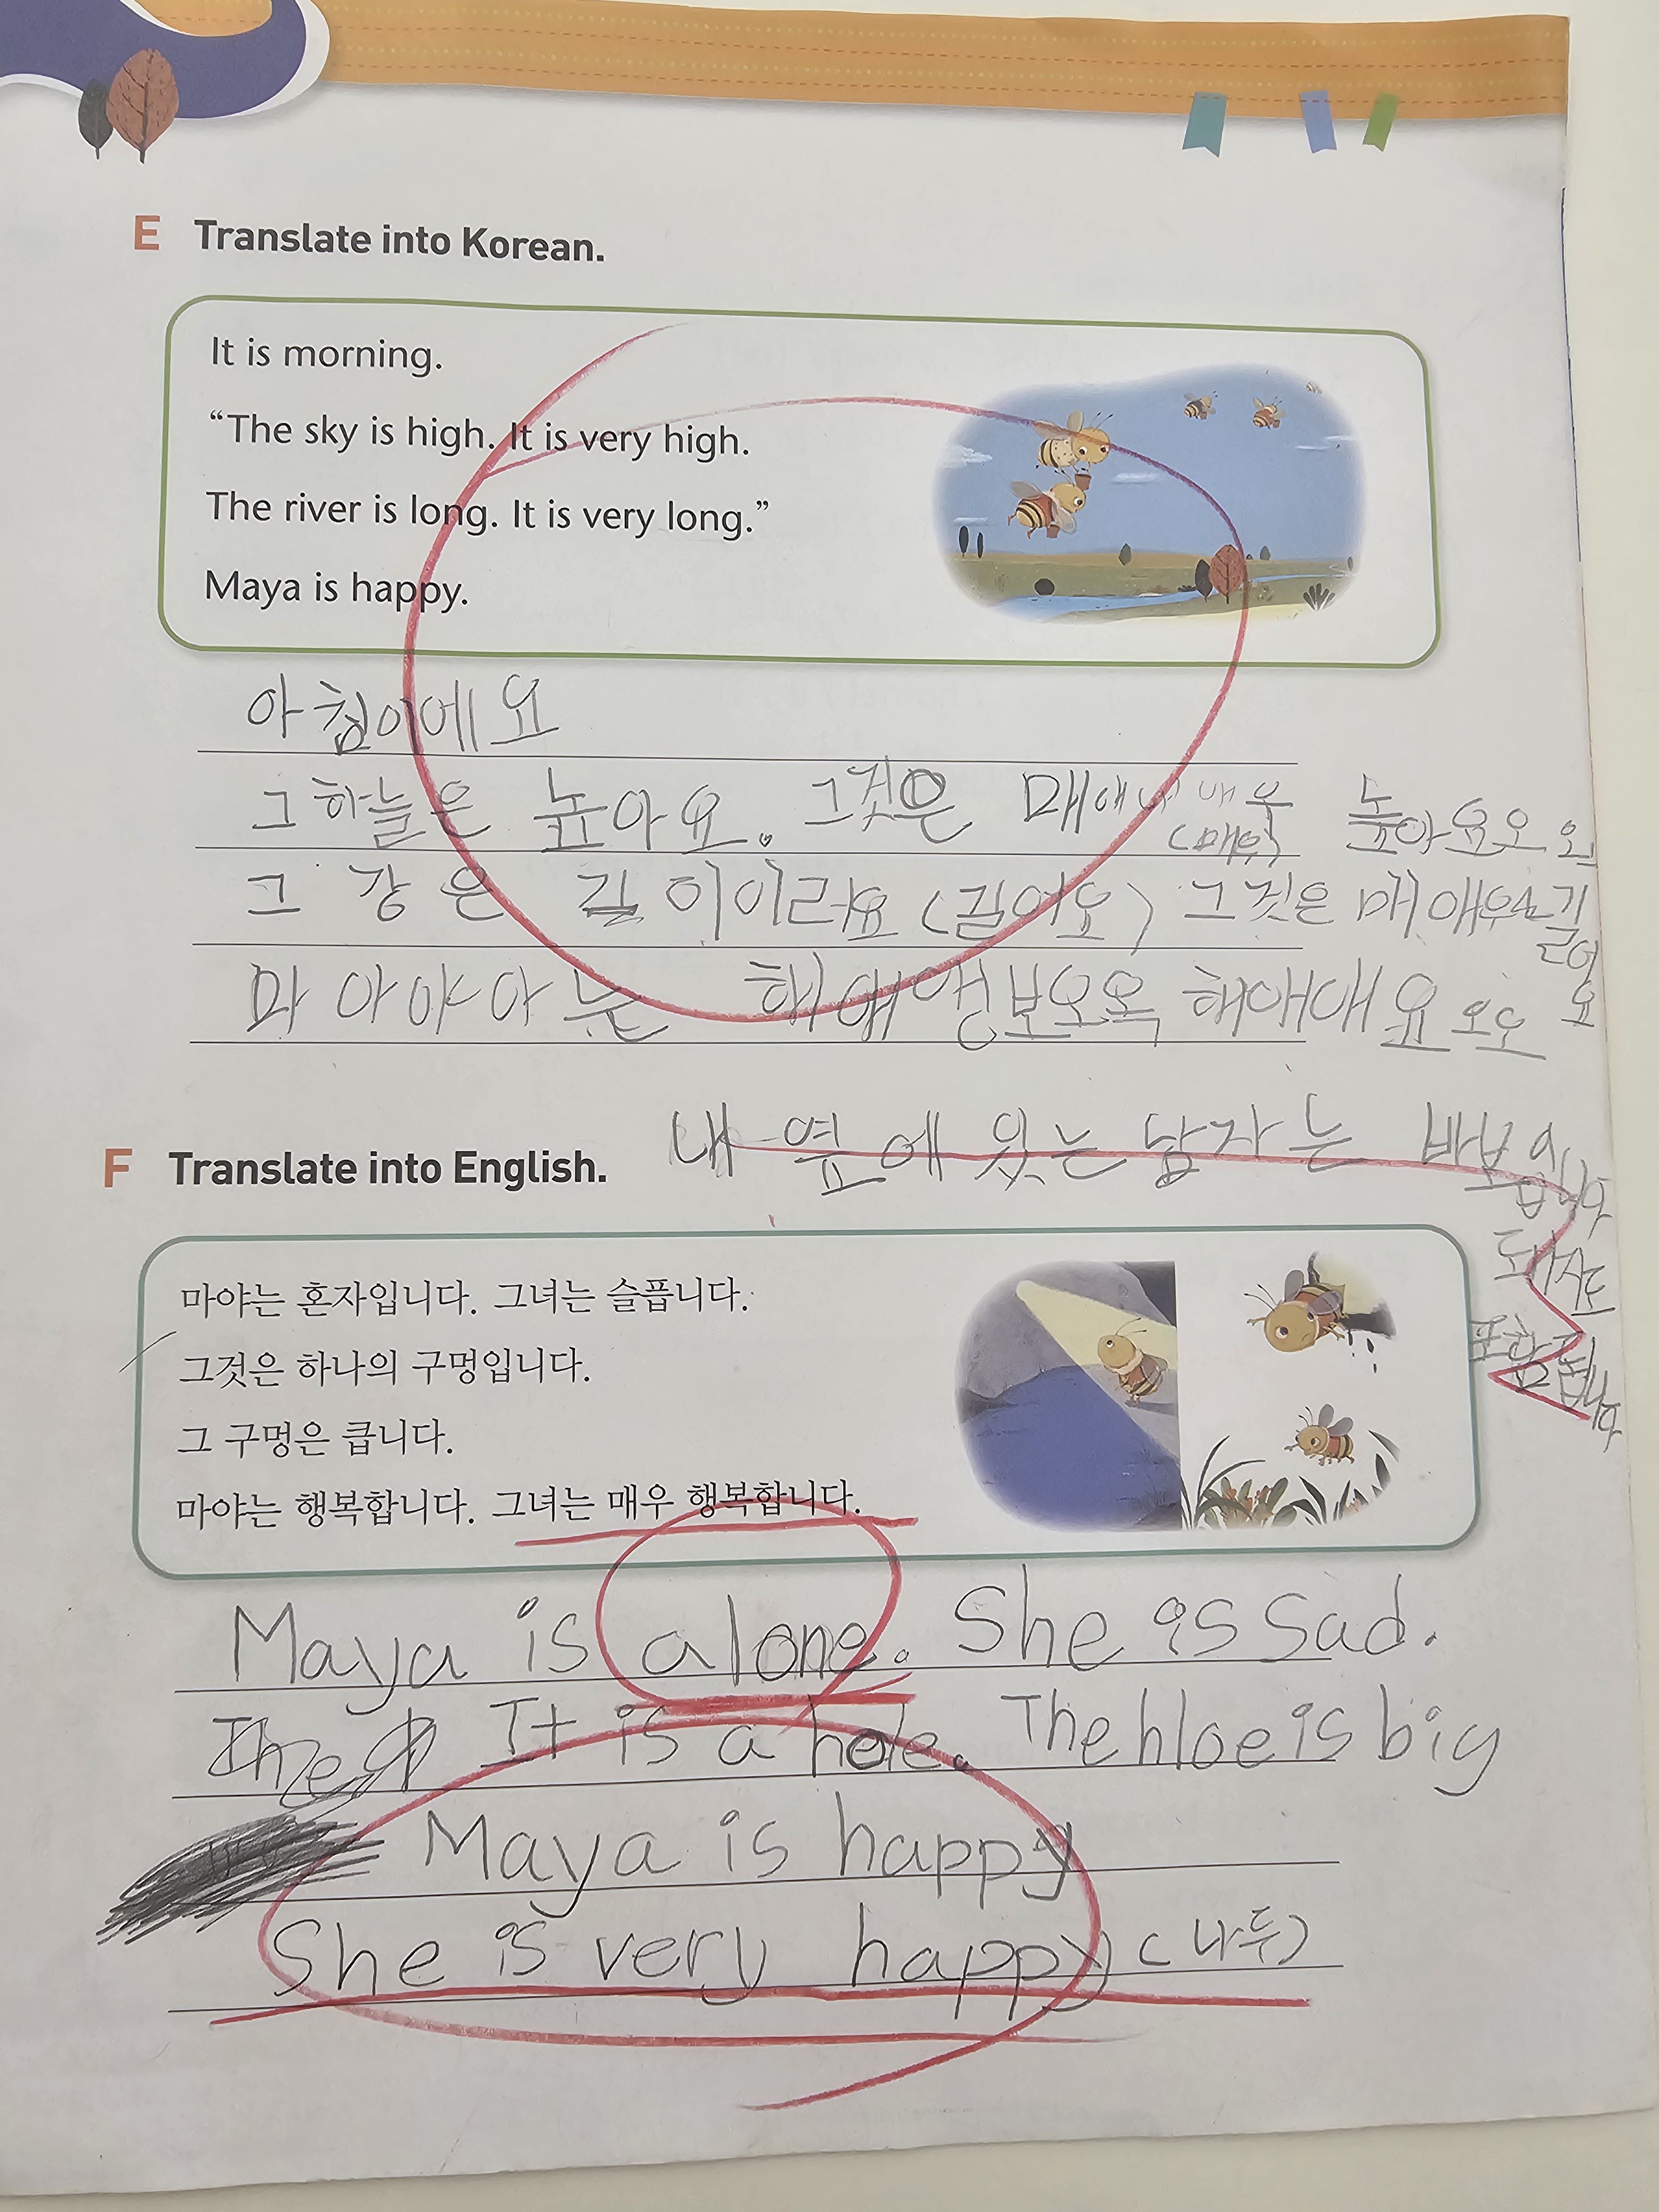 E Translate into Korean.
It is morning.
“The sky is high. It is very high.
The river is long. It is very long.”
Maya is happy.
아침이에요
그하늘은 높아요. 그것은 매애 매우 높아요오오
(매우)
그 강은 길이이러요 (길어요) 그것은 매애우 길어요
마아야아는 해애앵보오옥 해애애요오오
내 옆에 있는 남자는 바보입니다
돼지도
포함됩니다
F Translate into English.
마야는 혼자입니다. 그녀는 슬픕니다.
그것은 하나의 구멍입니다.
그 구멍은 큽니다.
마야는 행복합니다. 그녀는 매우 행복합니다.
Maya is alone. She is Sad.
The It is a hole. The hloe is big
Maya is happy
She is very happy (나두)